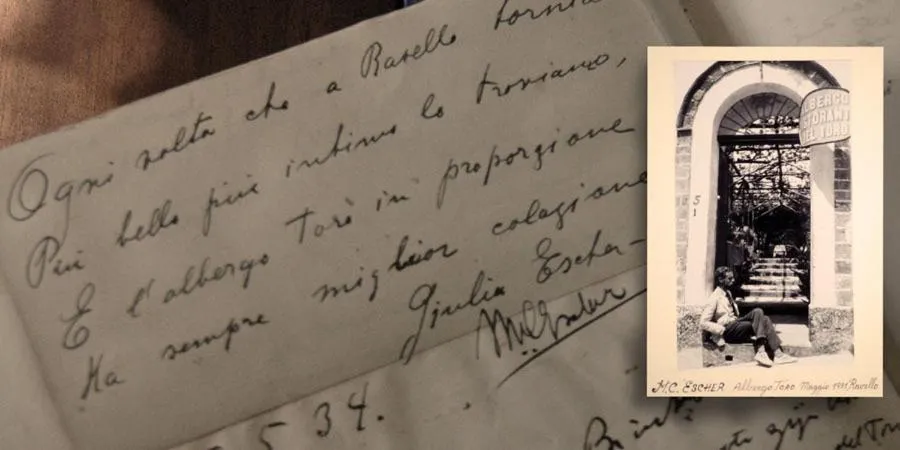 Ogni volta che a Ravello torniam
Più bello più intimo lo troviamo,
E l'albergo Toro in proporzione
Ha sempre miglior colazione
Giulia Escher-
MCEscher
5 34.
del Toro
ALBERGO
RISTORANT
DEL TORO
51
M.C. ESCHER Albergo Toro Maggio 1931, Ravello